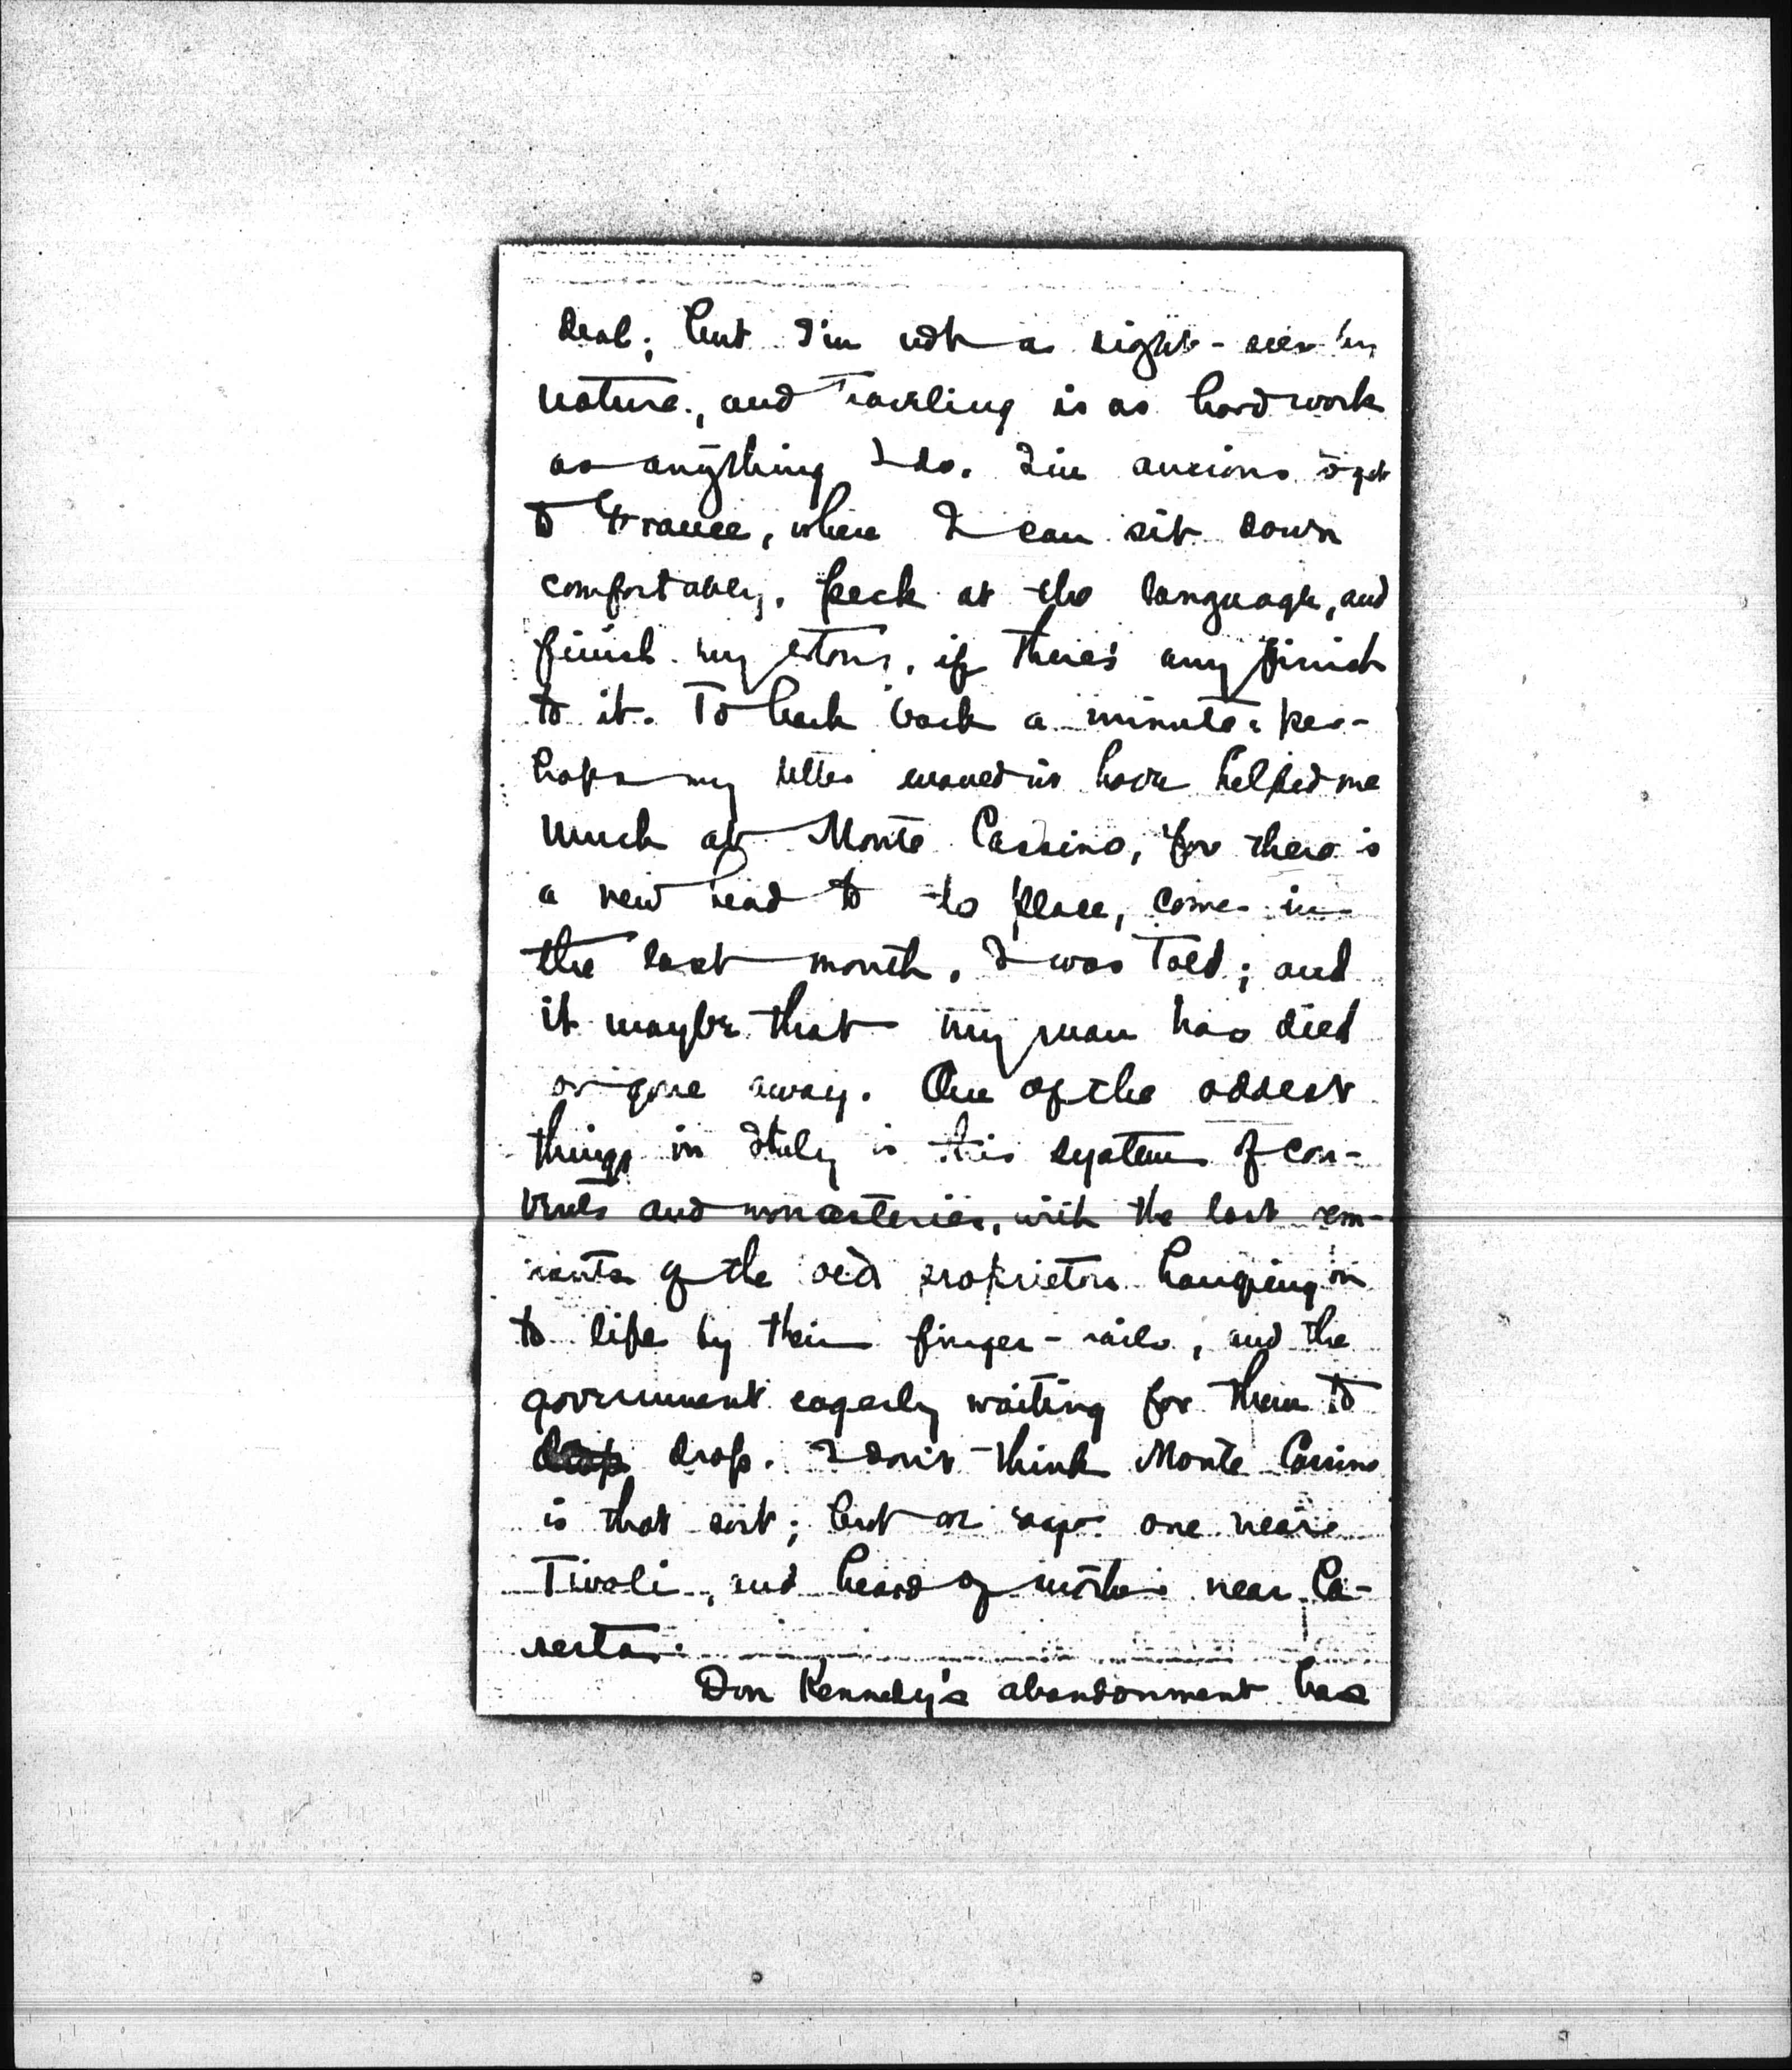 deal; but I'm not a sight-seer by
nature, and traveling is as hard work
as anything I do. I'm anxious to get
to France, where I can sit down
comfortably, peck at the language, and
finish my story, if there's any finish
to it. To hark back a minute: per-
haps my letter wouldn't have helped me
much at Monte Cassino, for there is
a new head to the place, come in
the last month, I was told; and
it may be that my man has died
or gone away. One of the oddest
things in Italy is this system of con-
vents and monasteries, with the last rem-
nants of the old proprietors hanging on
to life by their finger-nails, and the
government eagerly waiting for them to
drop drop. I don't think Monte Cassino
is that sort; but we saw one near
Tivoli, and heard of another near Ca-
serta.
Don Kennedy's abandonment has